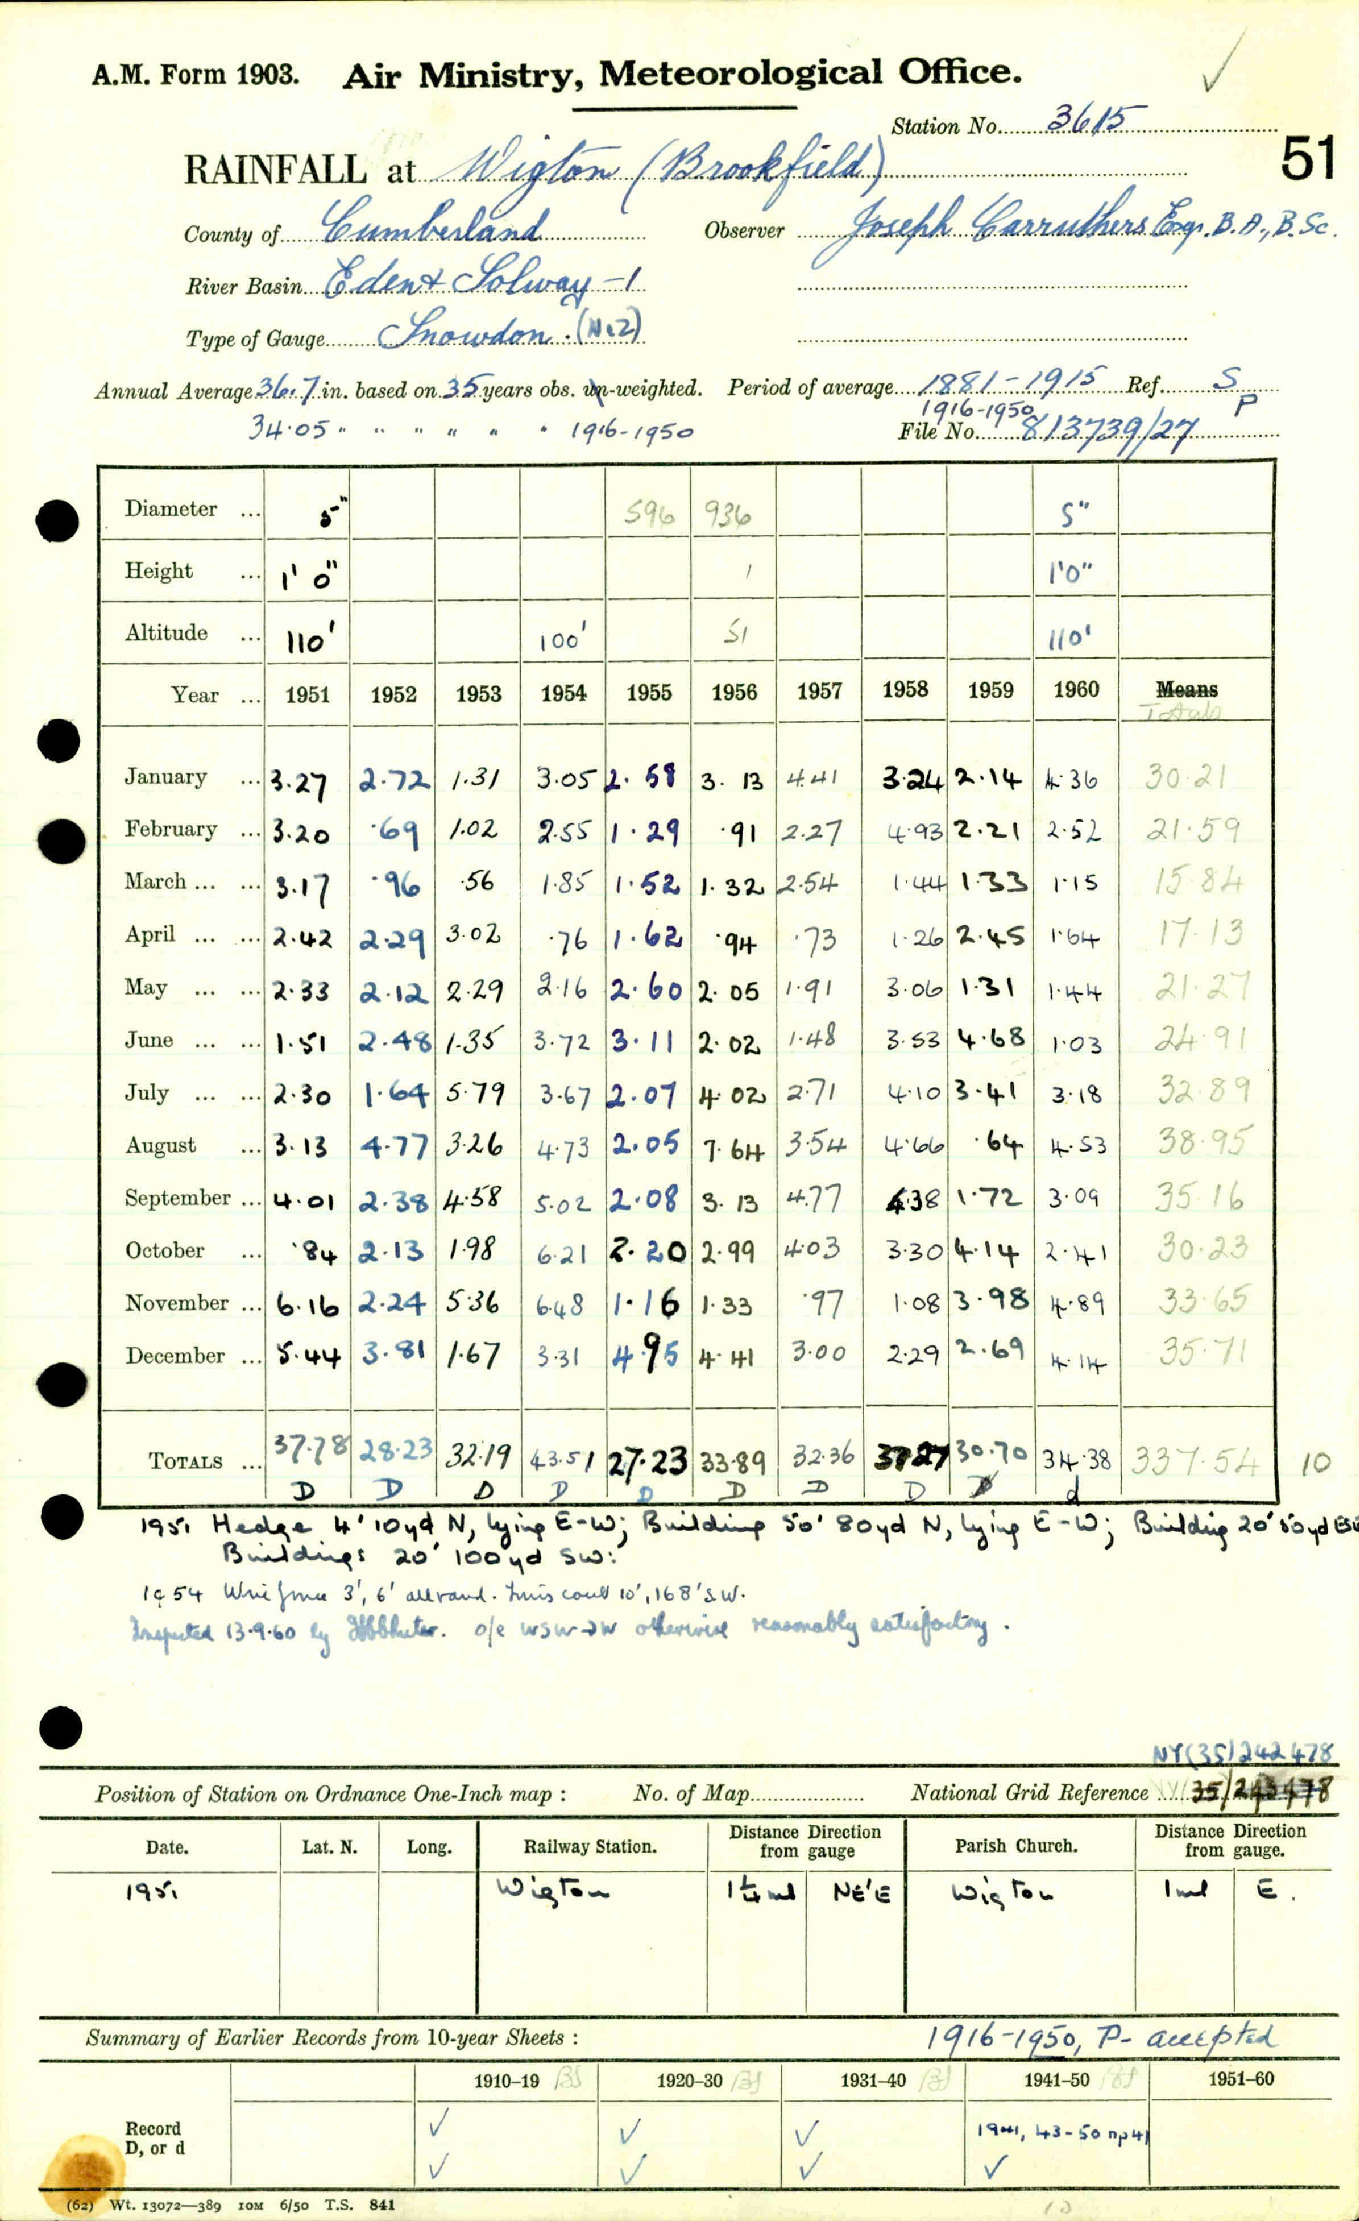 A.M. Form 1903. Air Ministry, Meteorological Office.
Station No. 3615
51
RAINFALL at Wigton (Brookfield)
County of Cumberland Observer Joseph Carruthers Esqr. B.A., B.Sc.
River Basin Eden & Solway -1
Type of Gauge Snowdon. (No2)
Annual Average 36.7 in. based on 35 years obs. un-weighted. Period of average 1881-1915 Ref. S
34.05 " " " " " " 1916-1950 1916-1950 P
File No. 813739/27
Diameter ... 5" 596 936 5"
Height ... 1' 0" 1 1'0"
Altitude ... 110' 100' 51 110'
Year ... 1951 1952 1953 1954 1955 1956 1957 1958 1959 1960 Means
Totals
January ... 3.27 2.72 1.31 3.05 2.58 3.13 4.41 3.24 2.14 4.36 30.21
February ... 3.20 .69 1.02 2.55 1.29 .91 2.27 4.93 2.21 2.52 21.59
March ... ... 3.17 .96 .56 1.85 1.52 1.32 2.54 1.44 1.33 1.15 15.84
April ... ... 2.42 2.29 3.02 .76 1.62 .94 .73 1.26 2.45 1.64 17.13
May ... ... 2.33 2.12 2.29 2.16 2.60 2.05 1.91 3.06 1.31 1.44 21.27
June ... ... 1.51 2.48 1.35 3.72 3.11 2.02 1.48 3.53 4.68 1.03 24.91
July ... ... 2.30 1.64 5.79 3.67 2.07 4.02 2.71 4.10 3.41 3.18 32.89
August ... 3.13 4.77 3.26 4.73 2.05 7.64 3.54 4.66 .64 4.53 38.95
September ... 4.01 2.38 4.58 5.02 2.08 3.13 4.77 4.38 1.72 3.09 35.16
October ... .84 2.13 1.98 6.21 2.20 2.99 4.03 3.30 4.14 2.41 30.23
November ... 6.16 2.24 5.36 6.48 1.16 1.33 .97 1.08 3.98 4.89 33.65
December ... 5.44 3.81 1.67 3.31 4.95 4.41 3.00 2.29 2.69 4.14 35.71
TOTALS ... 37.78 28.23 32.19 43.51 27.23 33.89 32.36 37.27 30.70 34.38 337.54 10
D D D D D D D D D d
1951 Hedge 4' 10yd N, lying E-W; Building 50' 80yd N, lying E-W; Building 20' 50yd ESE
Buildings 20' 100yd SW:
1954 Wire fence 3', 6' all round. Tennis court 10', 168' SW.
Inspected 13.9.60 by o/e WSW-SW otherwise reasonably satisfactory.
NY(35)242478
Position of Station on Ordnance One-Inch map : No. of Map National Grid Reference NY(35)243478
Date. Lat. N. Long. Railway Station. Distance Direction from gauge Parish Church. Distance Direction from gauge.
1951 Wigton 1¼ml NE'E Wigton 1ml E.
Summary of Earlier Records from 10-year Sheets : 1916-1950, P- accepted
1910-19 1920-30 1931-40 1941-50 1951-60
Record ✓ ✓ ✓ 1941, 43-50 np41
D, or d ✓ ✓ ✓ ✓
(62) Wt. 13072—389 10M 6/50 T.S. 841